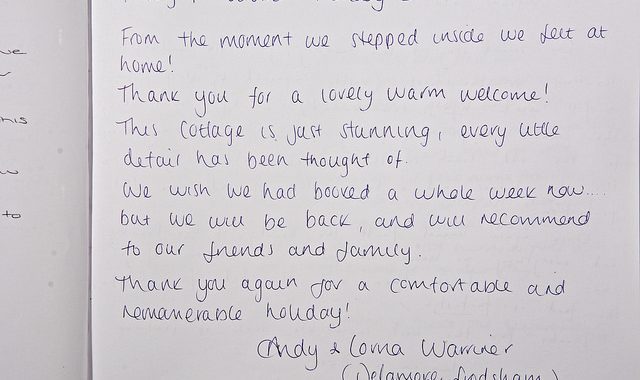 From the moment we stepped inside we felt at
home!
Thank you for a lovely warm welcome!
This cottage is just stunning, every little
detail has been thought of.
We wish we had booked a whole week now....
but we will be back, and will recommend
to our friends and family.
Thank you again for a comfortable and
remarkerable holiday!
Andy & Lorna Warriner
his
w
to